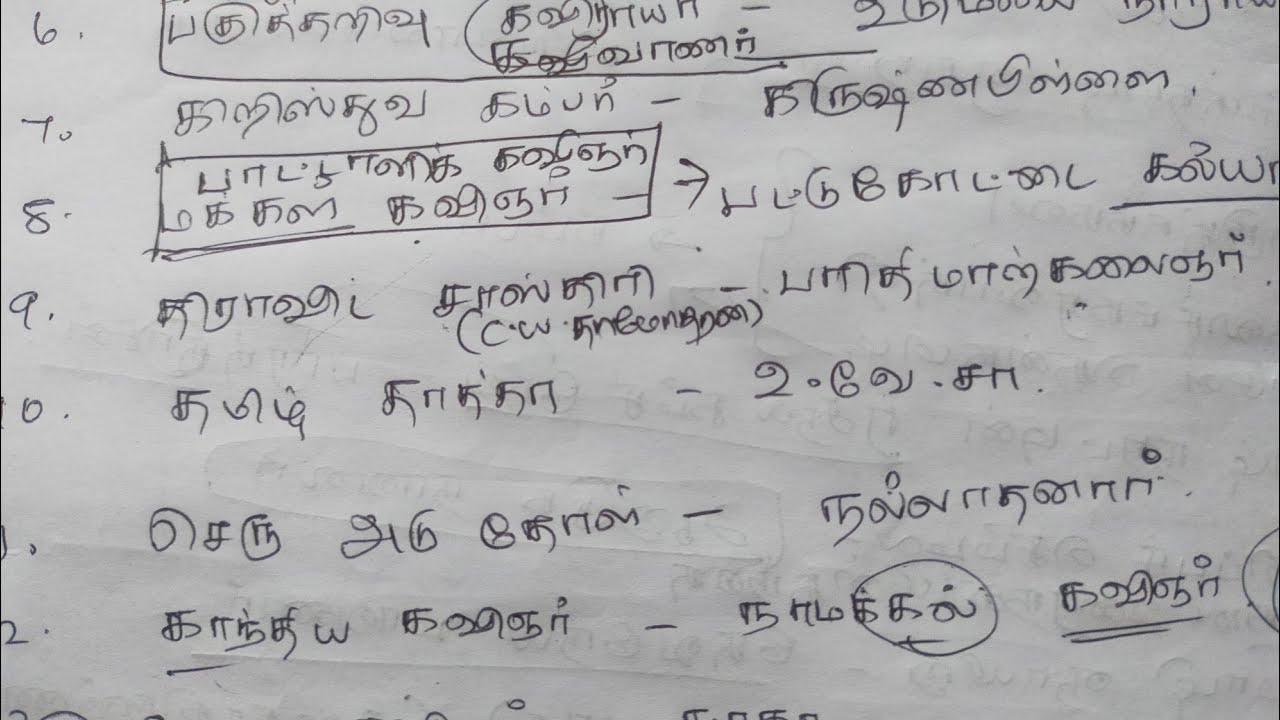 6. பகுத்தறிவு (கவிராயர் - உடுமலைய நாராய
கவிவாணர்
7. கிறிஸ்துவ கம்பர் - கிருஷ்ணபிள்ளை.
பாட்டாளிக் கவிஞர்
8. மக்கள் கவிஞர் - → பட்டுகோட்டை கல்யா
9. திராவிட சாஸ்திரி - பரிதிமாற்கலைஞர்.
(C.W.தாமோதரன்)
10. தமிழ் தாத்தா - உ.வே.சா.
1. செரு அடு தோள் - நல்லாதனார்.
2. காந்திய கவிஞர் - நாமக்கல் கவிஞர் (